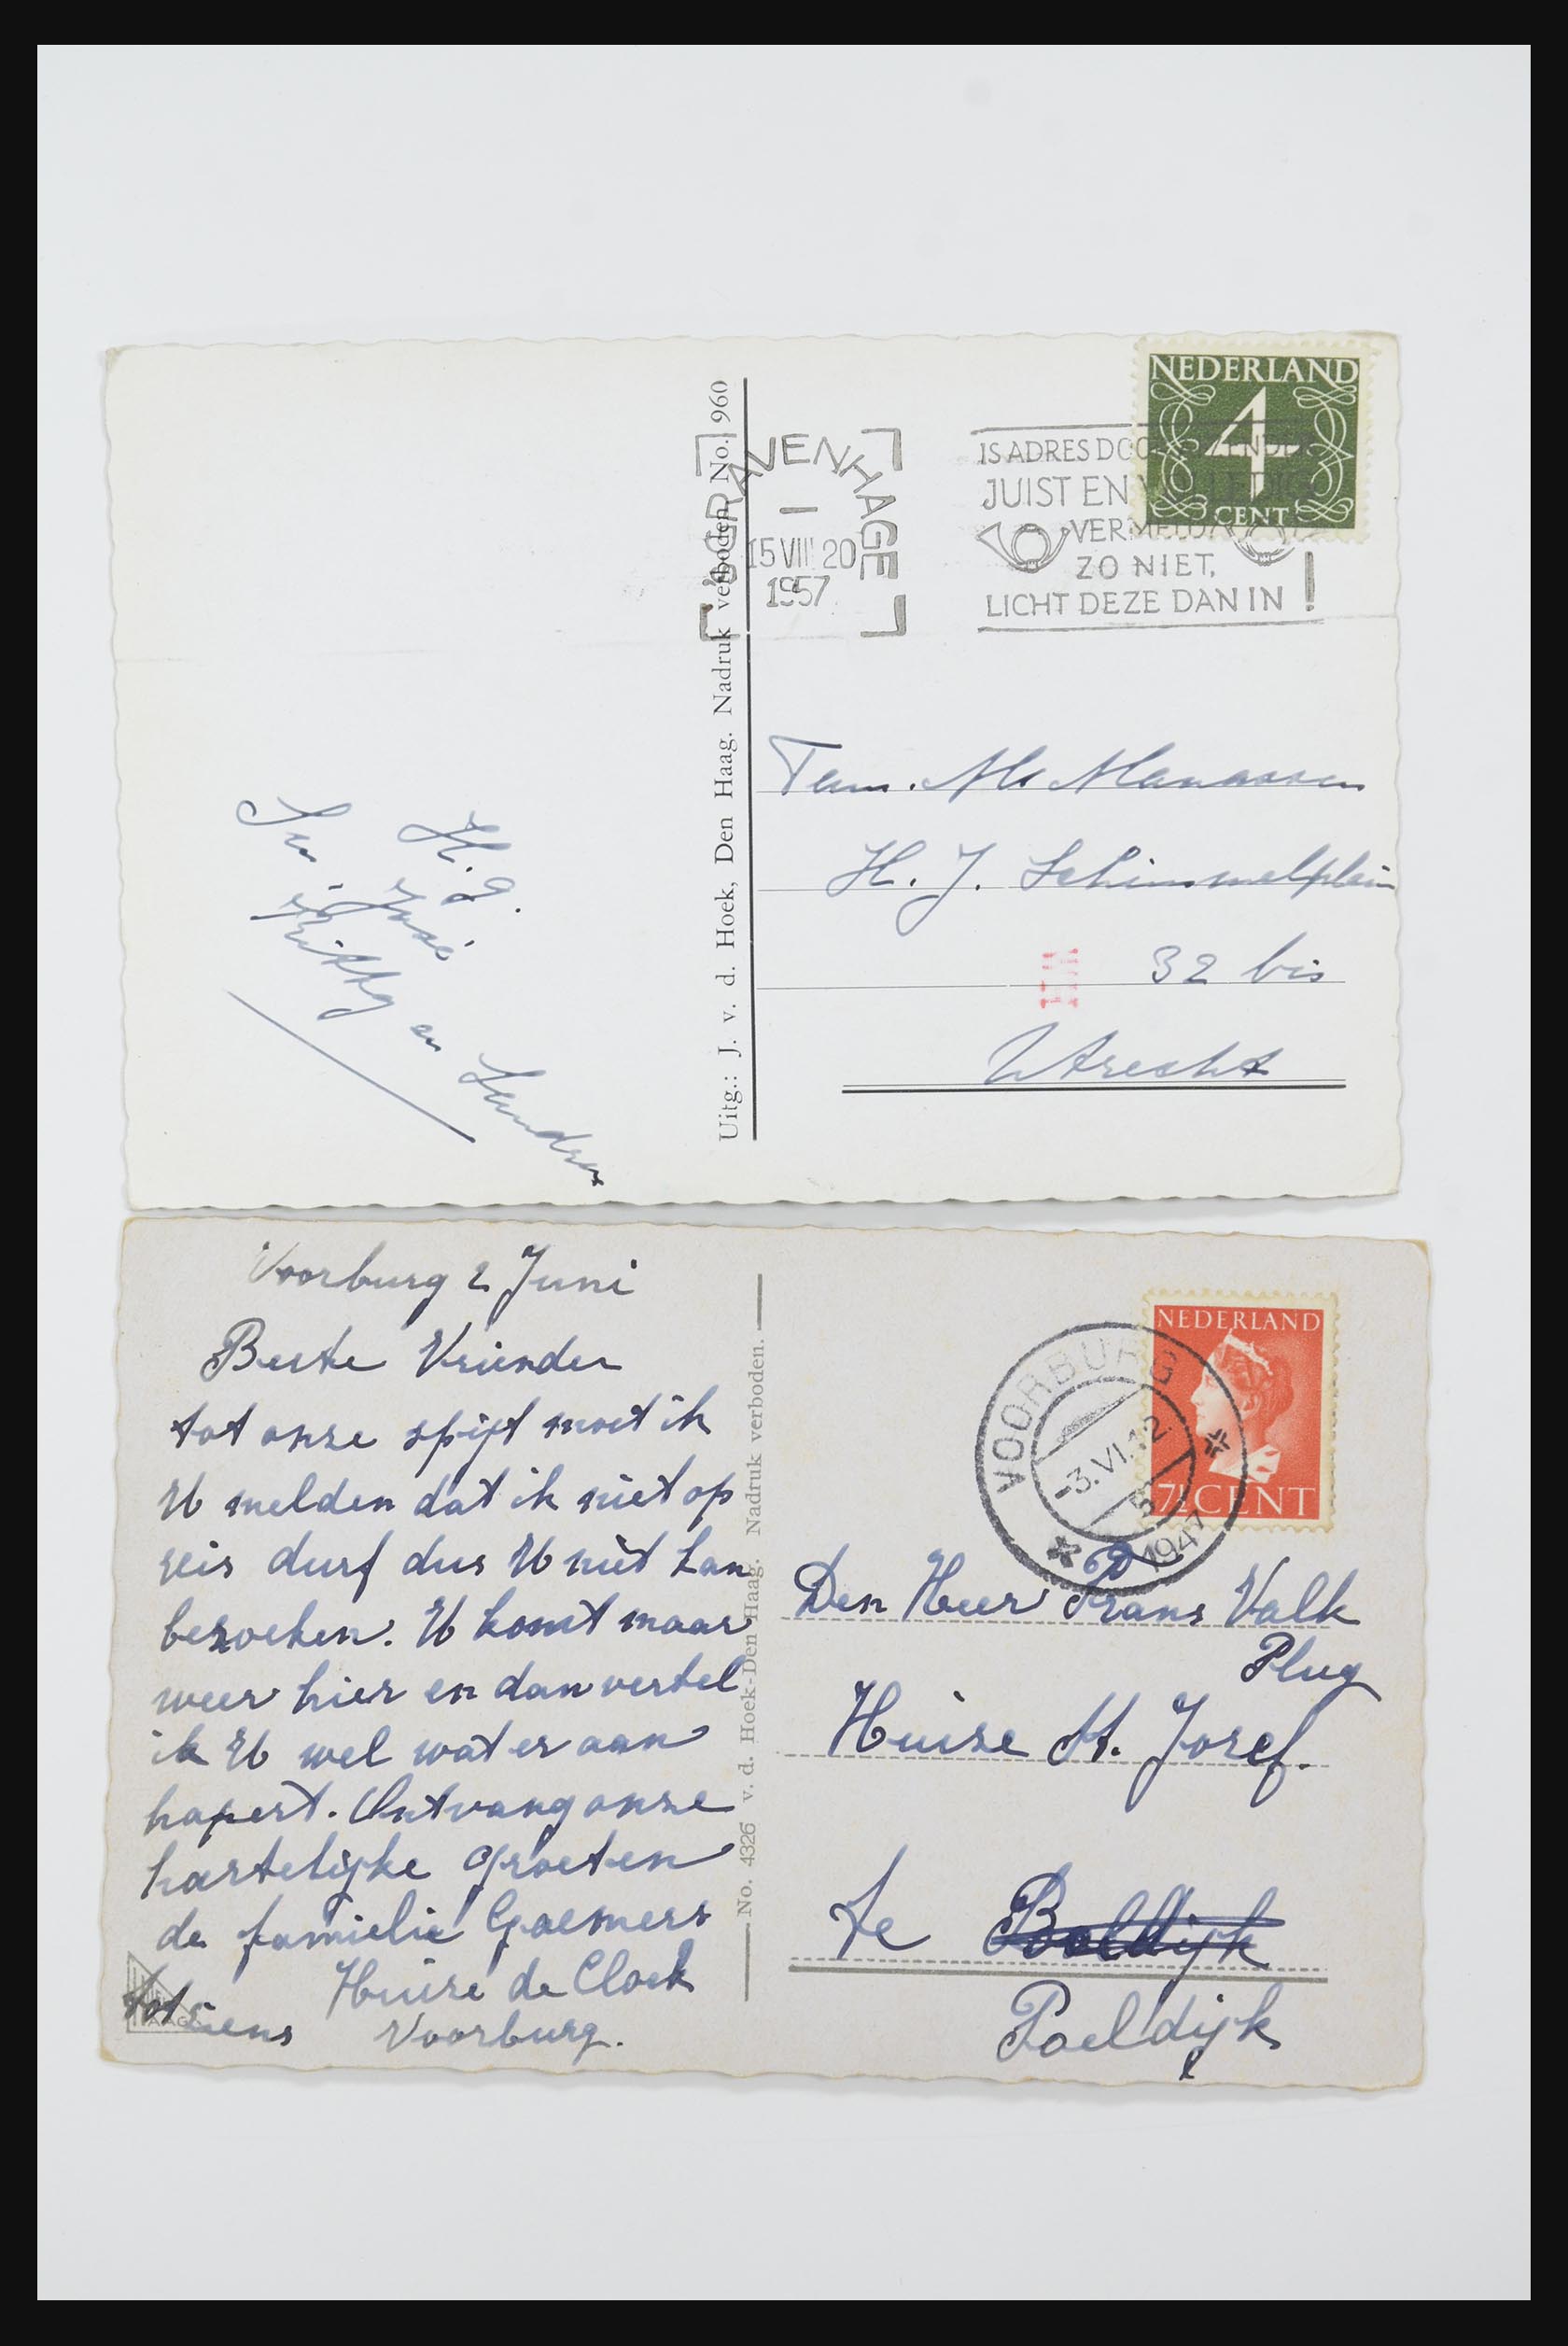 NEDERLAND
4
CENT
'S GRAVENHAGE
15 VIII 20
1957
IS ADRES DOOR AFZENDER
JUIST EN VOLLEDIG
VERMELD?
ZO NIET,
LICHT DEZE DAN IN !
Uitg.: J. v. d. Hoek, Den Haag. Nadruk verboden. No. 960
Fam. Manassen
H. J. Schimmelplein
32 bis
Utrecht
H. g.
José
Kitty en Sandra
Voorburg 2 Juni
Beste Vriender
tot onze spijt moet ik
U melden dat ik niet op
reis durf dus U niet kan
bezoeken. U komt maar
weer hier en dan vertel
ik U wel wat er aan
hapert. Ontvang onze
hartelijke groeten
de familie Goemers
Huize de Cloek
tot siens Voorburg.
No. 4326 v. d. Hoek-Den Haag. Nadruk verboden.
NEDERLAND
7½ CENT
VOORBURG
-3.VI.12
1947
Den Heer Frans Valk
Plug
Huize St. Josef.
te Boeldijk
Poeldijk